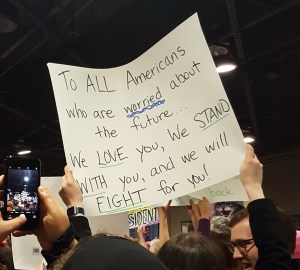 To ALL Americans
who are worried about
the future...
We LOVE you, We STAND
WITH you, and we will
FIGHT for you!
back
SIDENT